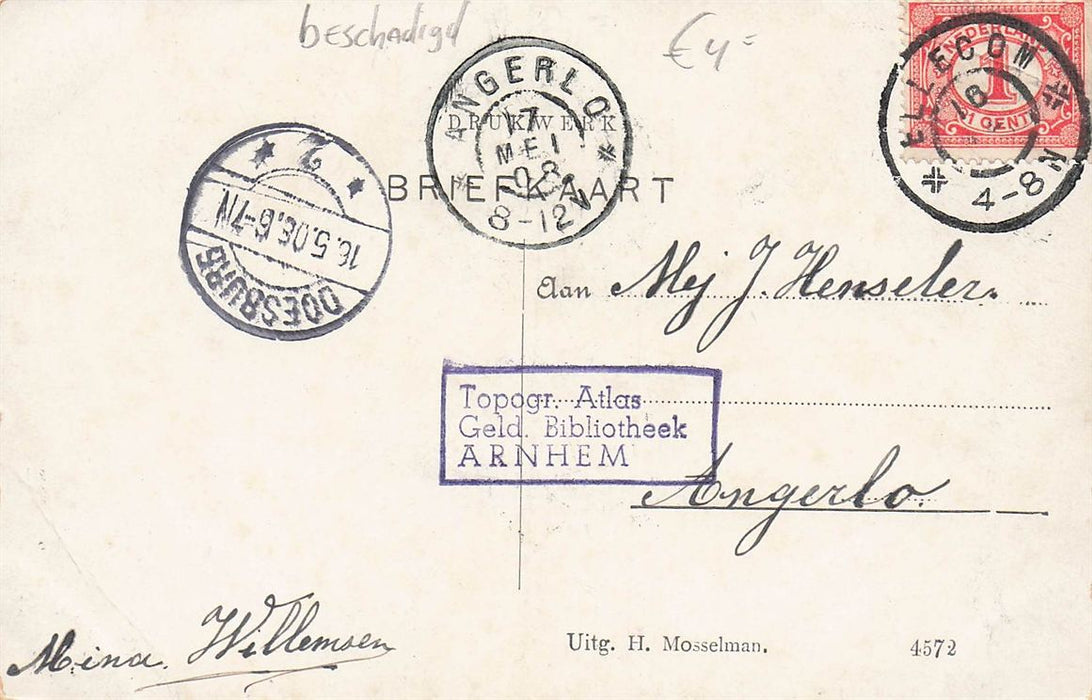 beschadigd
€ 4 =
NEDERLAND
1
1 CENT
ELLECOM
16
4-8N
ANGERLO
17
MEI
08
8-12V
DRUKWERK
BRIEFKAART
2
16.5.08.6-7N
DOESBURG
Aan Mej J. Henseler.
Topogr. Atlas
Geld. Bibliotheek
ARNHEM
Angerlo.
Mina Willemsen
Uitg. H. Mosselman.
4572